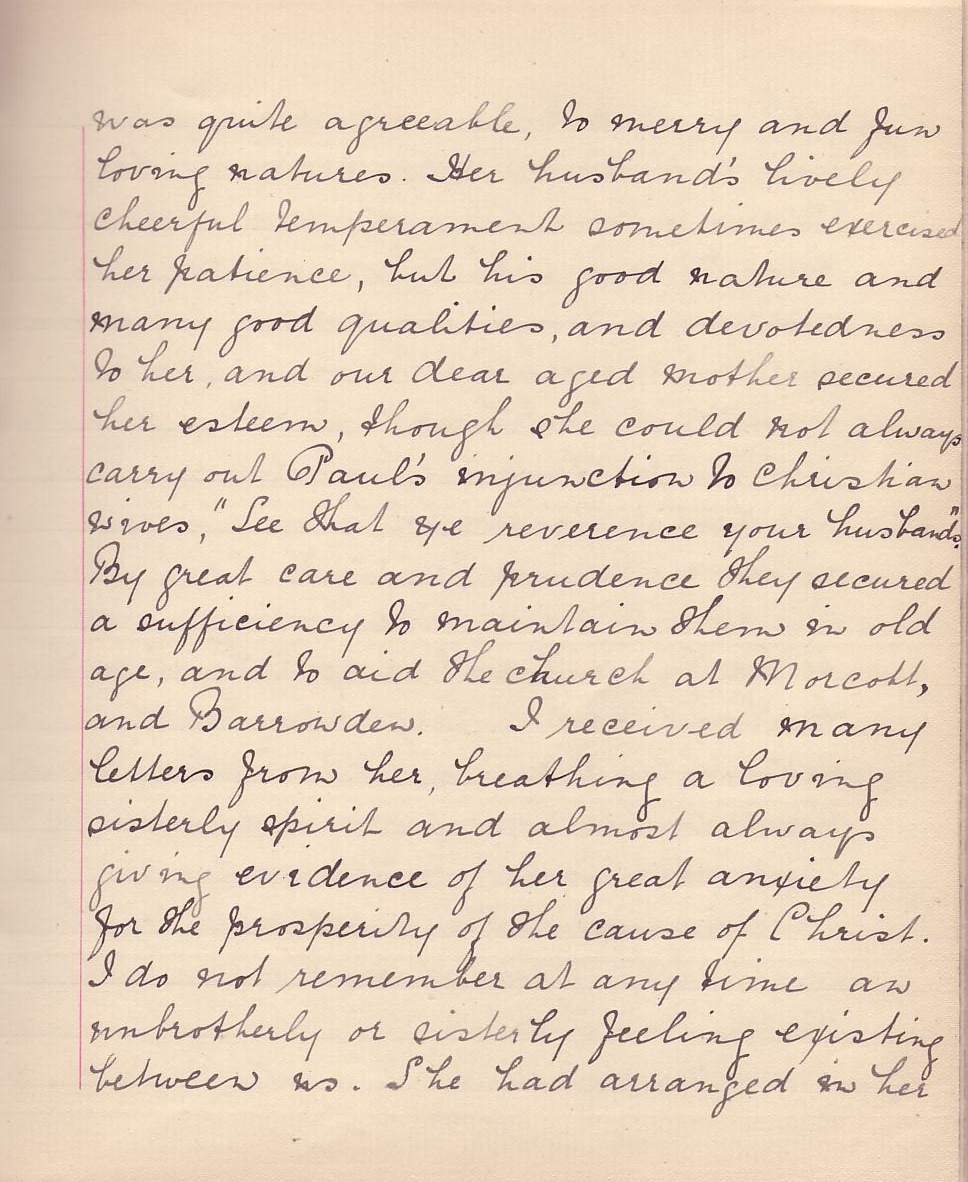 was quite agreeable, to merry and fun
loving natures. Her husband's lively
cheerful temperament sometimes exercised
her patience, but his good nature and
many good qualities, and devotedness
to her, and our dear aged mother secured
her esteem, though she could not always
carry out Paul's injunction to Christian
wives, "See that ye reverence your husbands".
By great care and prudence they secured
a sufficiency to maintain them in old
age, and to aid the church at Morcott,
and Barrowden. I received many
letters from her, breathing a loving
sisterly spirit and almost always
giving evidence of her great anxiety
for the prosperity of the cause of Christ.
I do not remember at any time an
unbrotherly or sisterly feeling existing
between us. She had arranged in her